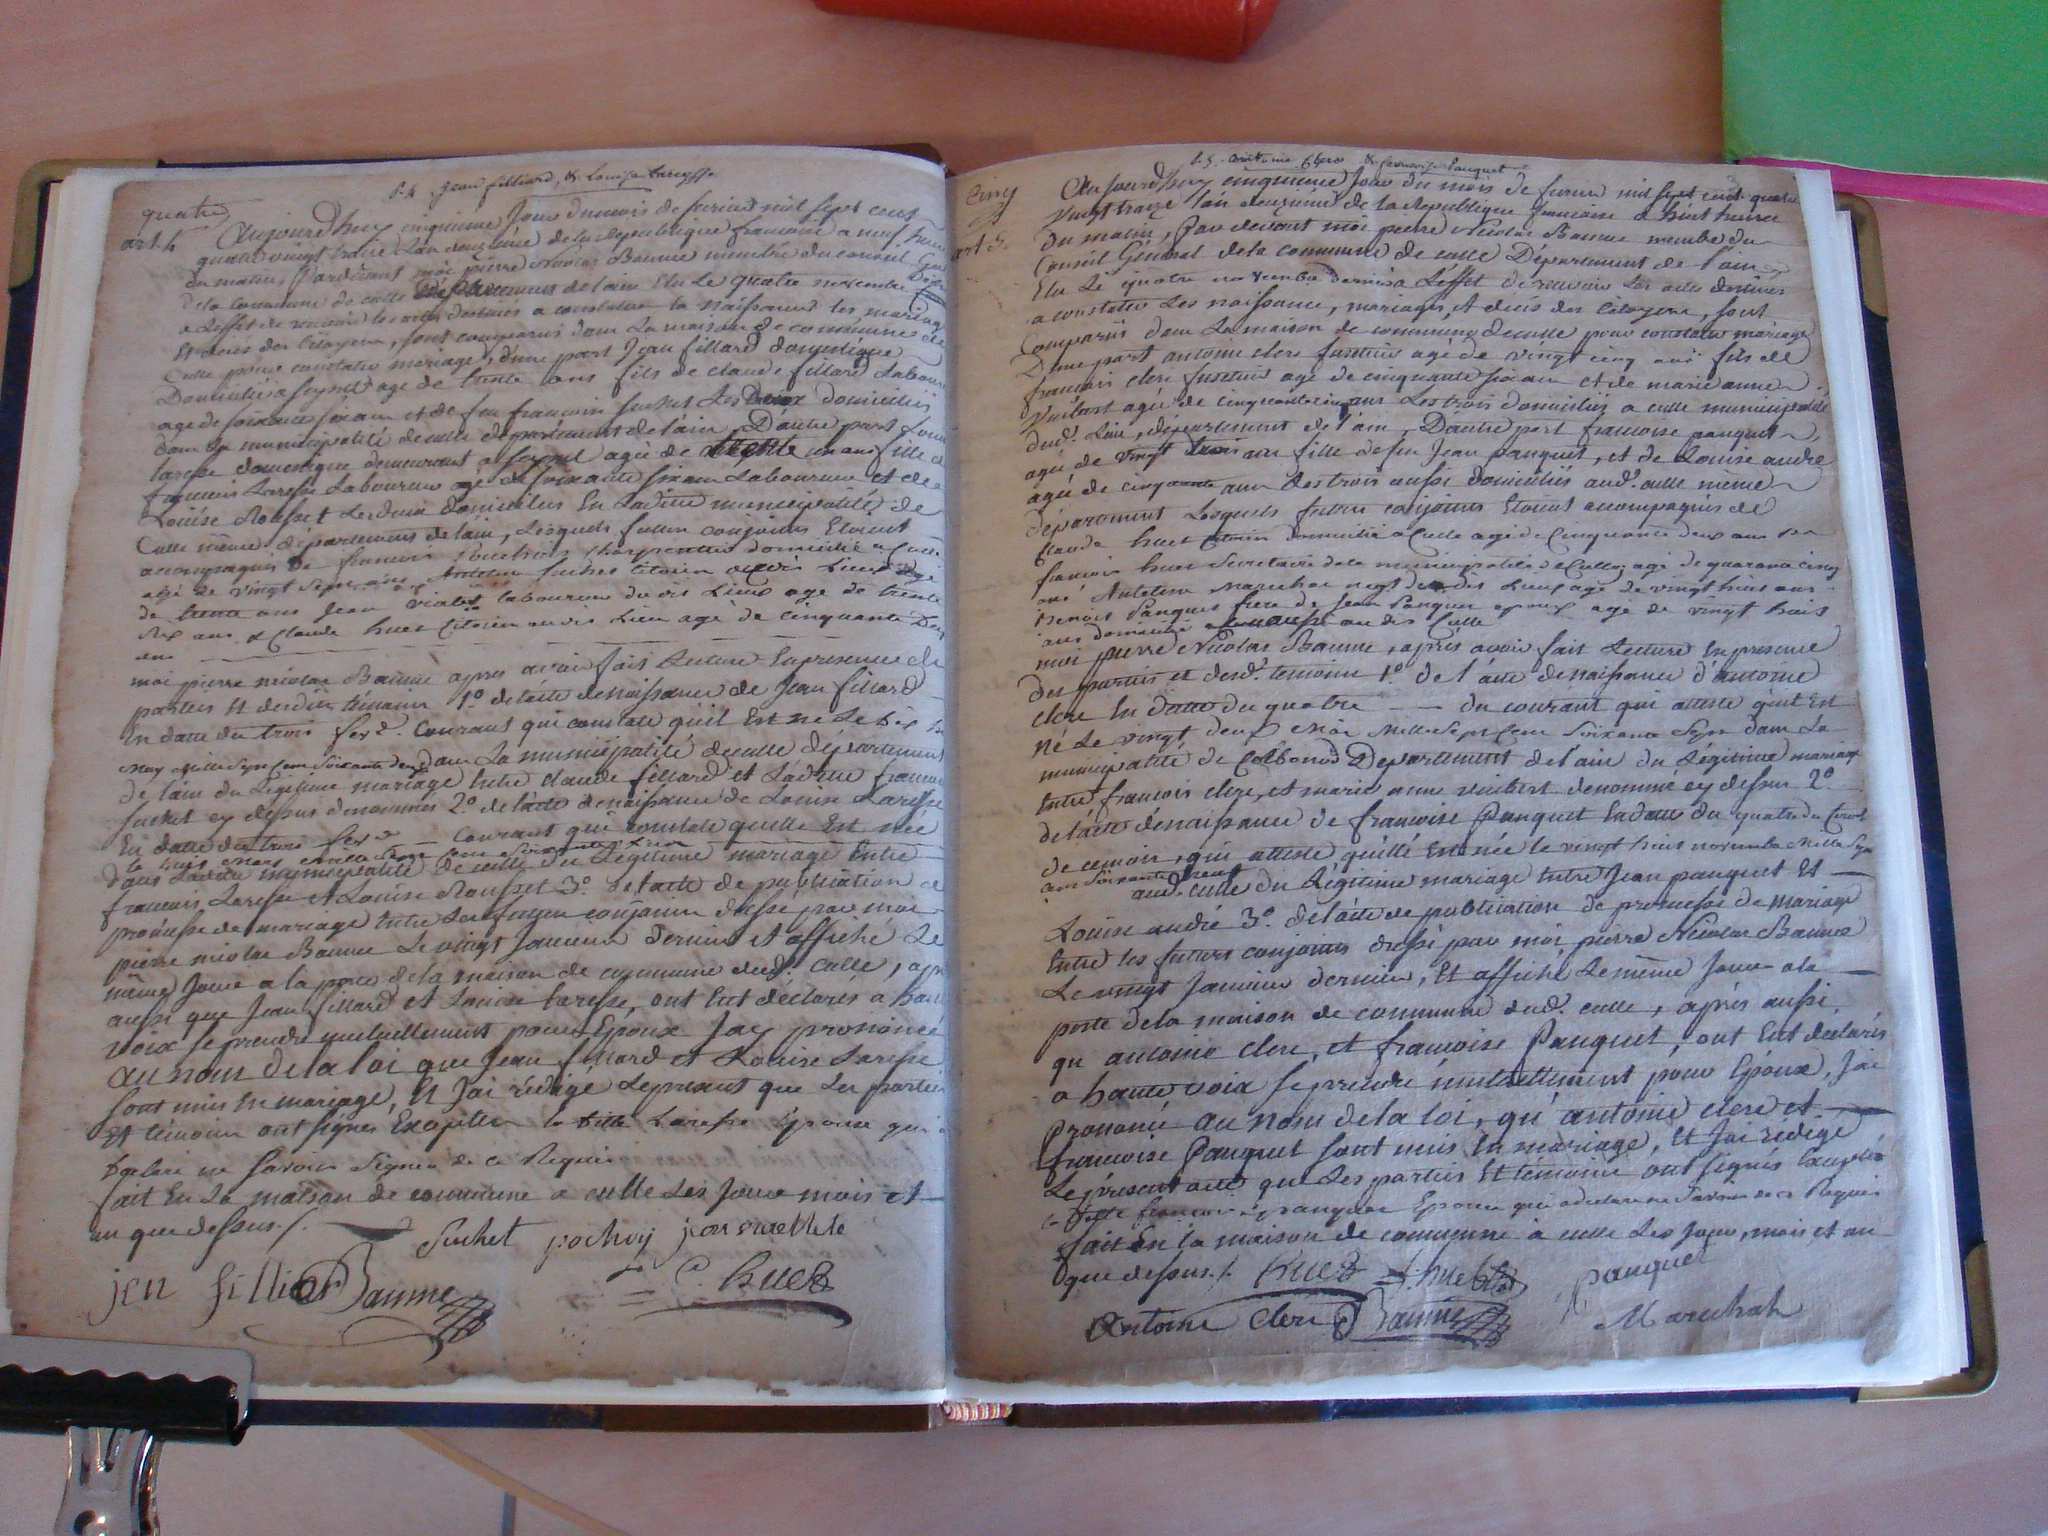 quatre
art. 4
f. 4. Jean filliard, & Louise Laresse
Aujourd'huy cinquieme Jour du mois de fevrier mil sept cent
quatre vingt traize L'an deuxième de la Republique francoise a neuf heure
du matin, Pardevant moi pierre Nicolas Baume membre du conseil Gen
de la Commune de culle Département de lain Elu Le quatre novembre
a Leffet de recevoir les actes destinés a constater la naissance les mariages
Et décés des Citoyens, sont comparus dans La maison de commune de
Culle pour constater mariage, d'une part Jean fillard domestique
Domicilié a seyssel age de trente ans fils de claude fillard Laboureur
age de soixante six ans et de feu francoise suchet Les Deux domiciliés
dans la municipalité de culle département de lain, D'autre part Louise
laresse domestique demeurant a seyssel agée de trente un ans fille de
francois Laresse Laboureur agé de soixante six ans Laboureur et de
Louise Rousset Les deux domiciliés En Ladite municipalité de
Culle même département de lain, Lesquels futurs conjoints Etoient
acompagnés de francois charpentier domicilié a Culle
agé de vingt sept ans, Antelme suchet citoien au dis Lieux agé
de trente ans Jean violet laboureur du dis Lieux age de trente
six ans & Claude huet Citoien au dis Lieu agé de cinquante Deux
ans
moi pierre nicolas Baume apres avoir fait Lecture En presence des
parties Et desdits témoins 1º de l'acte de naissance de Jean fillard
En datte du trois fevr. Courant qui constate qu'il Est né Le dix
may mille sept cent soixante deux dans La municipalité de culle département
de lain du Légitime mariage Entre claude fillard et Ladite francoise
suchet cy dessus denommés 2º de l'acte de naissance de Louise Laresse
En datte du trois fevr courant qui constate quelle Est née
le huit mars mille sept cent soixante
dans Ladite municipalité de culle du Légitime mariage Entre
francois Laresse et Louise Rousset 3º de l'acte de publication de
promesse de mariage Entre Les futurs conjoints dressé par moi
pierre nicolas Baume Le vingt Janvier Dernier et affiché Le
même Jour a la porte de la maison de commune dud. Culle, apres
aussi que Jean fillard et Louise laresse, ont Eut déclarés à haute
voix se prendre mutuellement pour Epoux Jay prononcé
au nom de la loi que Jean fillard et Louise Laresse
sont unis En mariage, Et J'ai rédigé Le present que Les parties
Et témoins ont signés Excepter la ditte Laresse Epouse qui a
déclaré ne savoir signer de ce Requis
fait En La maison de commune a culle Les Jour mois et
an que dessus./.
Suchet pochoy jean violete
jen filliar Baume C. huet
Cinq
art 5.
f. 5. antoine Clerc & francoise Pauquet
Aujourd'huy cinquieme Jour du mois de fevrier mil sept cent quatre
vingt traize l'an deuxieme de la Republique francoise a huit heures
du matin, Par devant moi pierre Nicolas Baume membre du
Conseil Général de la commune de culle Département de l'ain
Elu Le quatre novembre dernier a L'effet de recevoir Les actes destinés
a constater Les naissance, mariages, et décés des Citoyens, sont
comparus dans La maison de commune de culle pour constater mariage
D'une part antoine clerc agé de vingt cinq ans fils de
francois clerc agé de cinquante six ans et de marie anne
vuibert agée de cinquante cinq ans Les trois domiciliés a culle municipalité
dud. Lieu, département de l'ain, D'autre part francoise pauquet
agée de vingt trois ans fille de feu Jean pauquet, et de Louise andré
agée de cinquante ans Les trois aussi domiciliés aud. culle meme
département Lesquels futurs conjoints Etoient acompagnés de
Claude huet citoien domicilié a Culle agé de cinquante deux ans
francois huet Secretaire de la municipalité de Culle agé de quarante cinq
ans Antelme Marechat negt du dis Lieu agé de vingt huit ans
Benois Pauquet frere de Jean Pauquet age de vingt huit
ans domicilié au dis Culle
moi pierre Nicolas Baume, après avoir fait Lecture En presence
des parties et desd. temoins 1º de l'acte de naissance d'antoine
clerc En datte du quatre du courant qui atteste qu'il Est
né Le vingt deux Mai Mille Sept Cent Soixante Sept dans La
municipalité de Département de l'ain du Légitime mariage
Entre francois clerc, et marie anne vuibert denommé cy dessus 2º
de l'acte de naissance de francoise Pauquet En datte du quatre du Courant
de ce mois, qui atteste, qu'elle Est née le vingt huit novembre Mille Sept
cent soixante neuf
aud. culle du Légitime mariage Entre Jean pauquet Et
Louise andré 3º de l'acte de publication de promesse de mariage
Entre les futurs conjoints dressé par moi pierre Nicolas Baume
Le vingt Janvier dernier, Et affiché Le même Jour a la
porte de la maison de commune dud. culle, après aussi
qu'antoine clerc, et francoise Pauquet, ont Eut declarés
a haute voix se prendre mutuellement pour Epoux, J'ai
prononcé au nom de la loi, qu'antoine clerc et
francoise Pauquet sont unis En mariage, Et J'ai rédigé
Le présent acte que Les parties Et temoins ont signés Excepté
la ditte francoise pauquet Epouse qui a declaré ne Savoir de ce Requis
fait En la maison de commune à culle Les Jour, mois, et an
que dessus./. huet huet pauquet
Antoine Clerc Baume Marechat